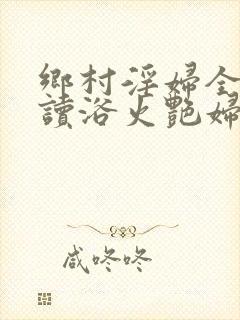 鄉村淫婦全
讀浴火艷婦
咸咚咚